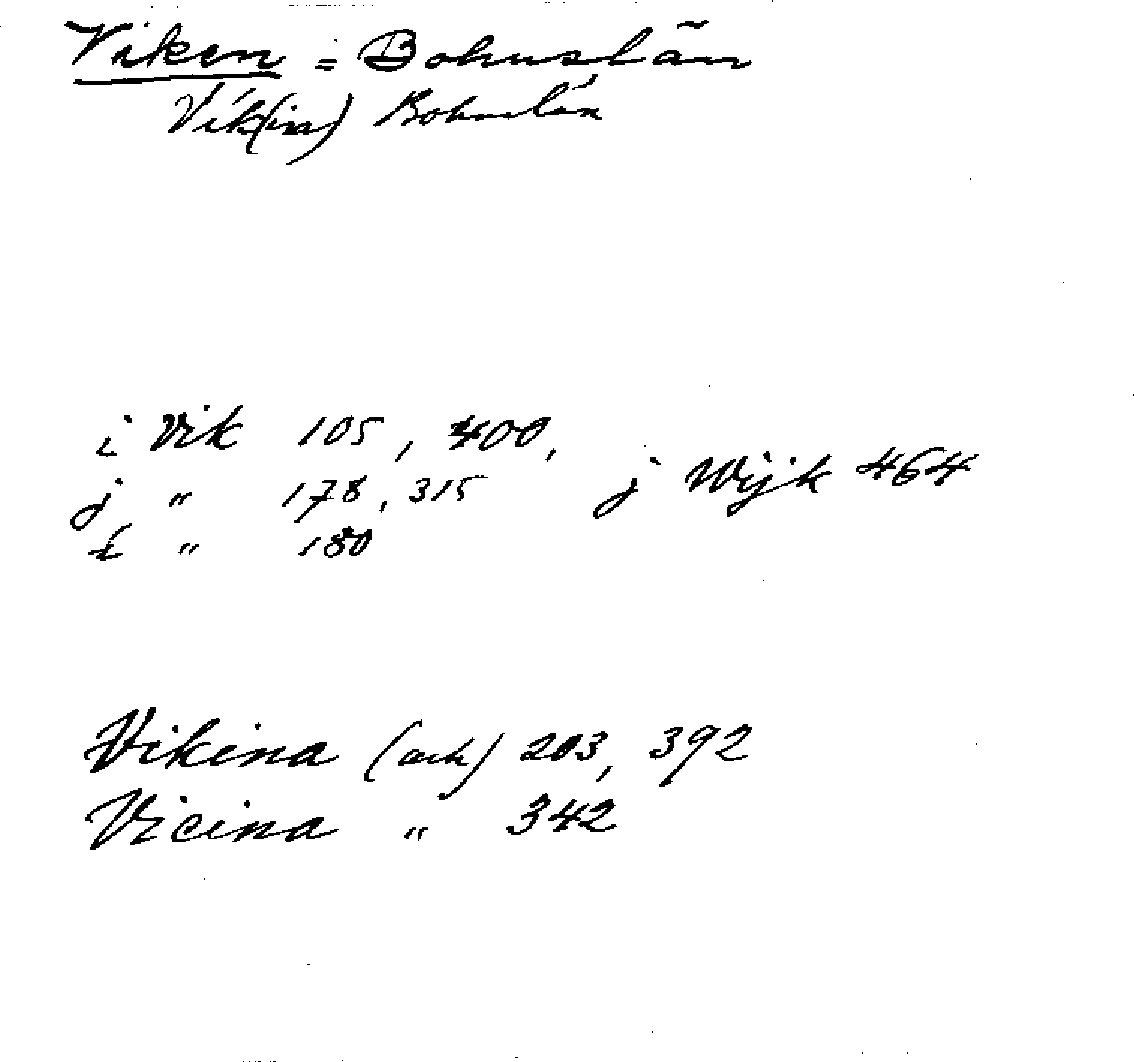 Viken = Bohuslän
Vík(in) Bohuslän
i Vik 105, 400,
j " 178, 315 j Wijk 464
í " 180
Vikina (ack) 203, 392
Vicina " 342